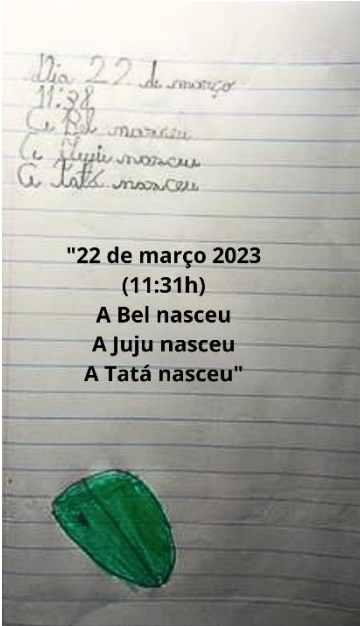 Dia 22 de março
11:38
A Bel nasceu
A Juju nasceu
A Tatá nasceu
"22 de março 2023
(11:31h)
A Bel nasceu
A Juju nasceu
A Tatá nasceu"